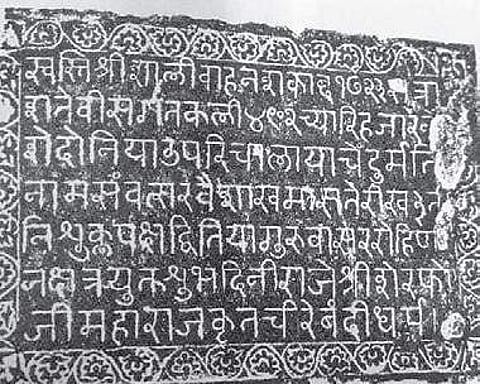 स्वस्ति श्री शालीवाहन शकाब्द
शते वीस गत कली च्यारि हजार
शे दोनि या उपरि चालाया चें दुर्मति
नाम संवत्सर वैशाख मास तेरीख
नि शुक्ल पक्ष द्वितिया गुरुवासर रोहिणी
नक्षत्र युक्त शुभ दिनी राजे श्री शरफो
जी महाराज कृत चीरेबंदी धर्म